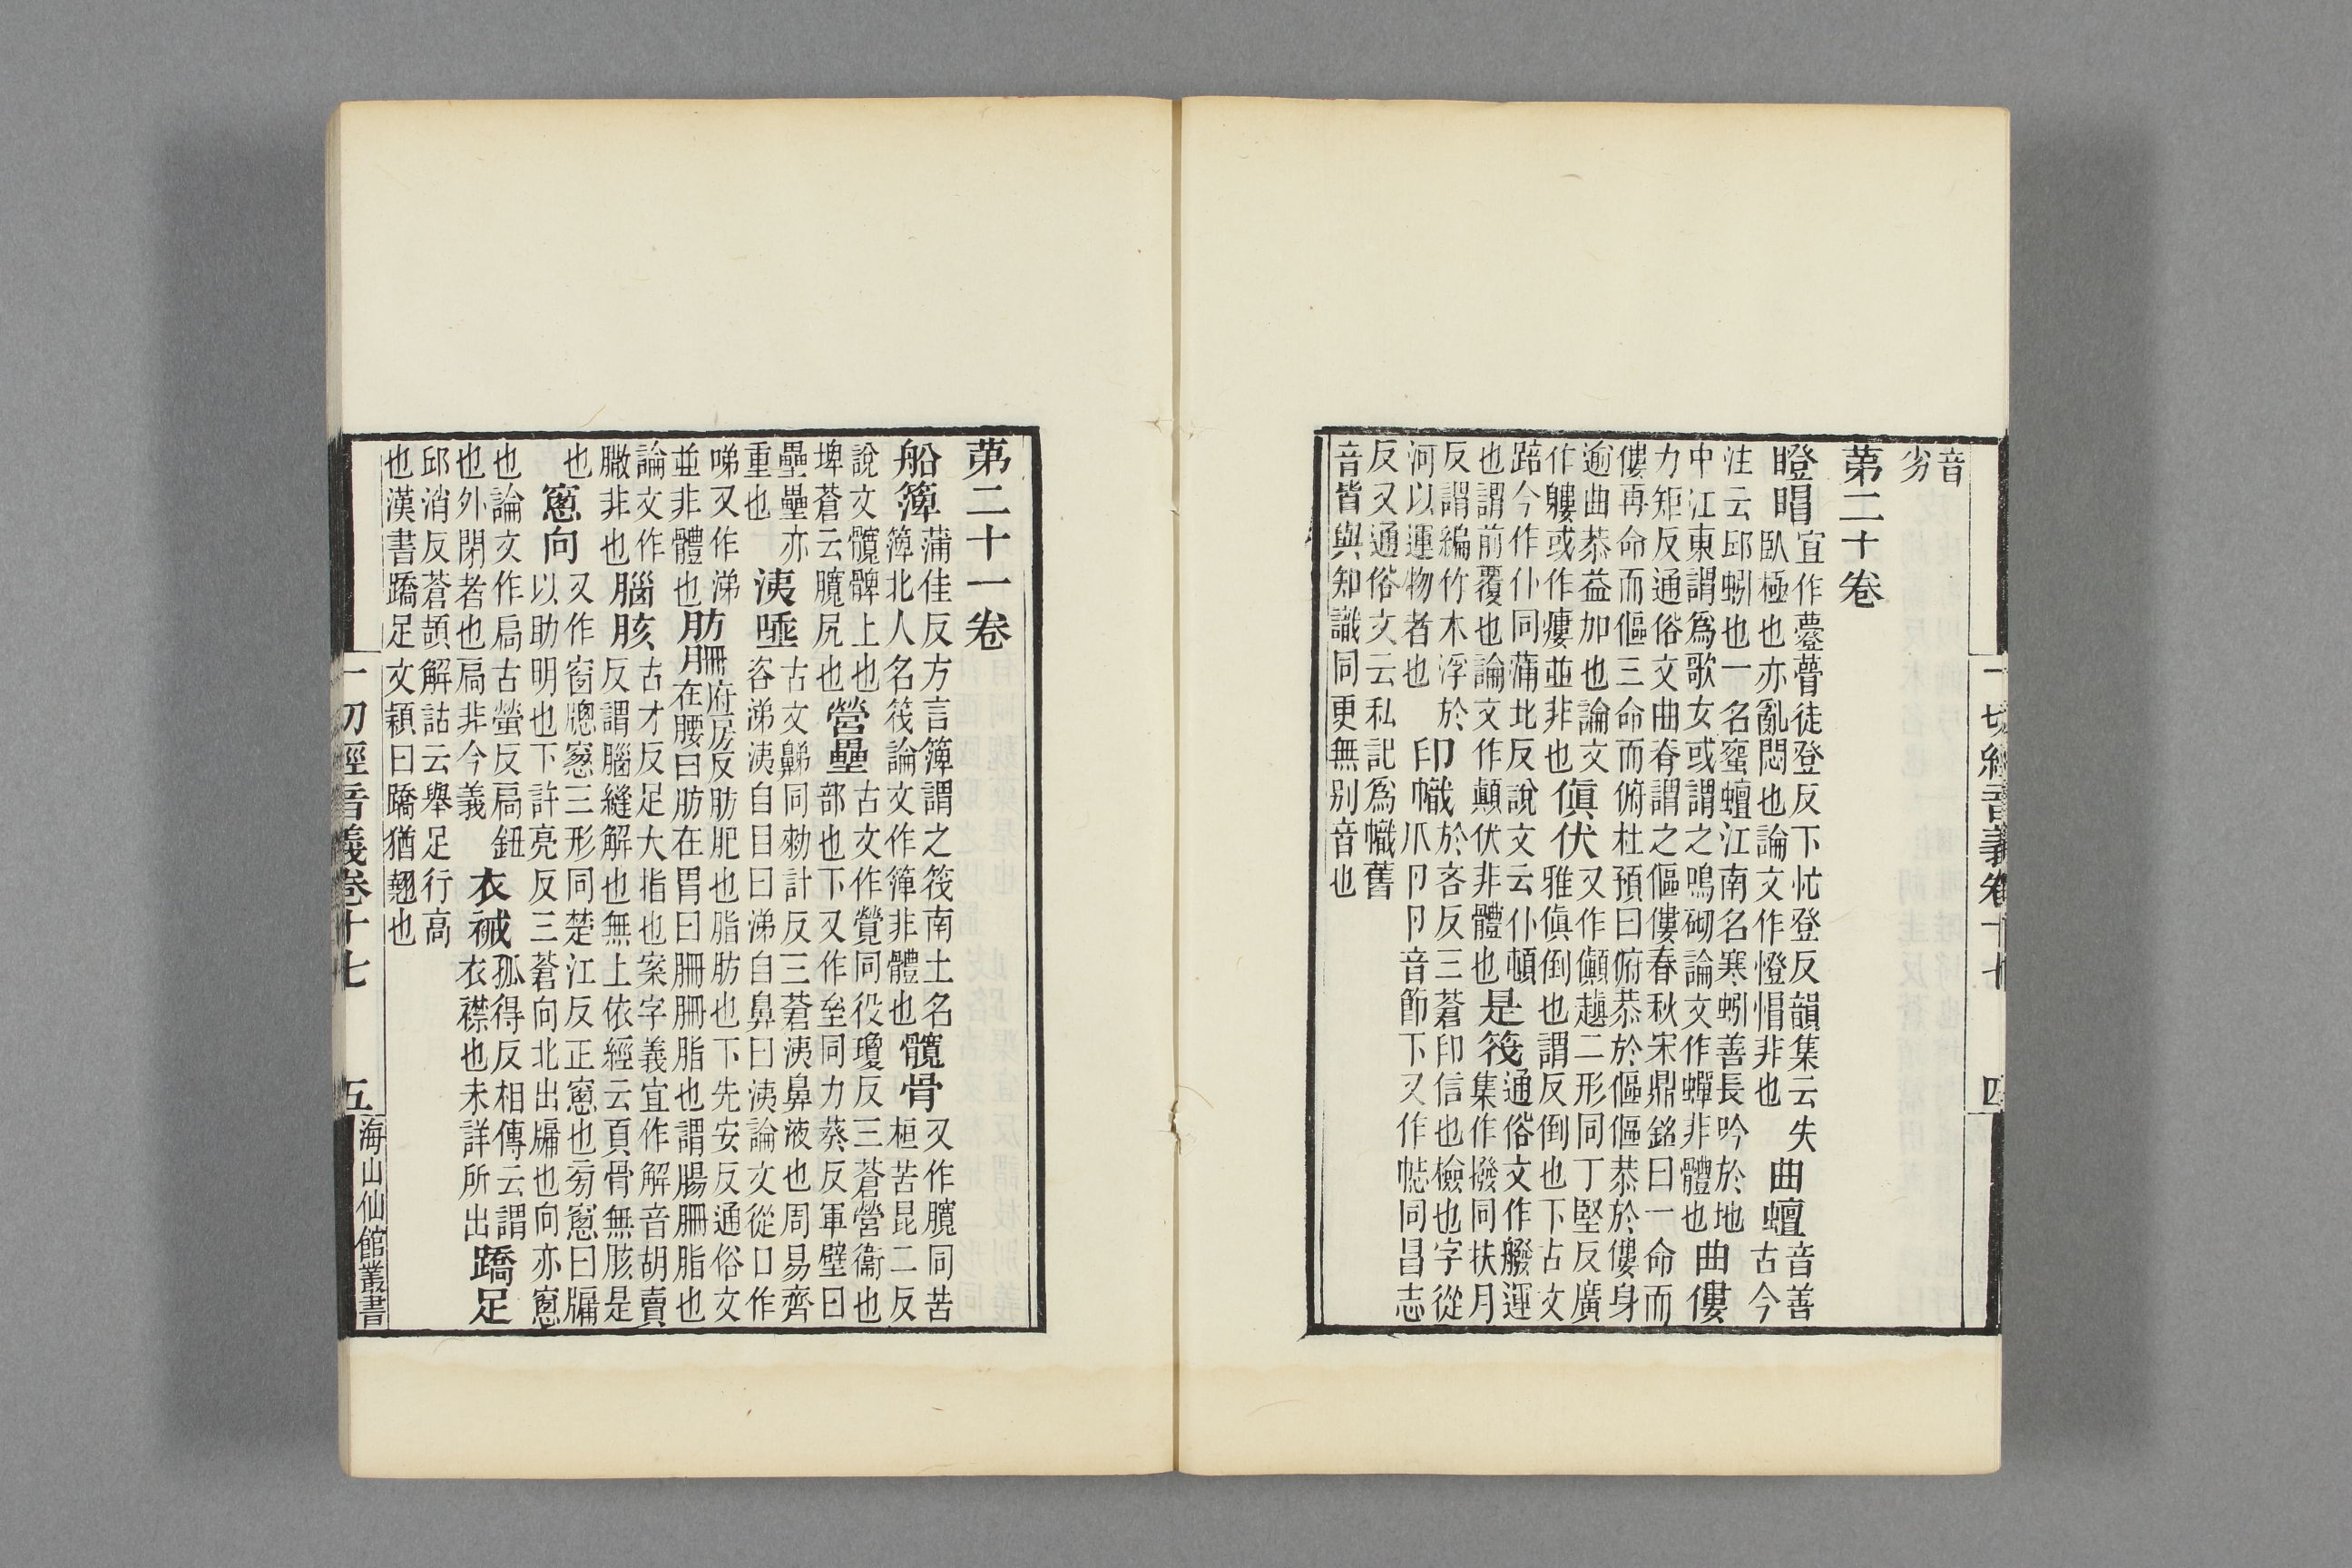 一切經音義卷十七 四
音
劣
第二十卷
瞪𥄎宜作䒢瞢徒登反下忙登反韻集云失
臥極也亦亂悶也論文作憕㥧非也
曲蟺音善
古今
注云邱蚓也一名蜜蟺江南名寒蚓善長吟於地
中江東謂爲歌女或謂之鳴砌論文作蟬非體也
曲僂
力矩反通俗文曲脊謂之傴僂春秋宋鼎銘曰一命而
僂再命而傴三命而俯杜預曰俯恭於傴傴恭於僂身
逾曲恭益加也論文
作軁或作瘻並非也
傎伏又作傎𧽍二形同丁堅反廣
雅傎倒也謂反倒也下古文
踣今作仆同蒲北反說文云仆頓
也謂前覆也論文作顛伏非體也
是筏通俗文作橃運
集作撥同扶月
反謂編竹木浮於
河以運物者也
印幟於吝反三蒼印信也檢也字從
爪卪卪音節下又作㡇同昌志
反又通俗文云私記爲幟舊
音皆與知識同更無別音也
第二十一卷
船簰蒲佳反方言簰謂之筏南土名
簰北人名筏論文作箄非體也
髖骨又作臗同苦
桓苦昆二反
說文髖髀上也
埤蒼云臗尻也
營壘古文作覮同役瓊反三蒼營衞也
部也下又作垒同力葵反軍壁曰
壘壘亦
重也
洟唾古文鮷同勑計反三蒼洟鼻液也周易齊
咨涕洟自目曰涕自鼻曰洟論文從口作
㖒又作涕
並非體也
肪𦙱府房反肪肥也脂肪也下先安反通俗文
在腰曰肪在胃曰𦙱𦙱脂也謂腸𦙱脂也
論文作
𦠿非也
腦胲古才反足大指也案字義宜作解音胡賣
反謂腦縫解也無上依經云頂骨無胲是
也
窻向又作窗牎窓三形同楚江反正窻也旁窻曰牖
以助明也下許亮反三蒼向北出牖也向亦窻
也論文作扃古螢反扃鈕
也外閉者也扃非今義
衣裓孤得反相傳云謂
衣襟也未詳所出
蹻足
邱消反蒼頡解詁云舉足行高
也漢書蹻足文穎曰蹻猶翹也
一切經音義卷十七 五 海山仙館叢書